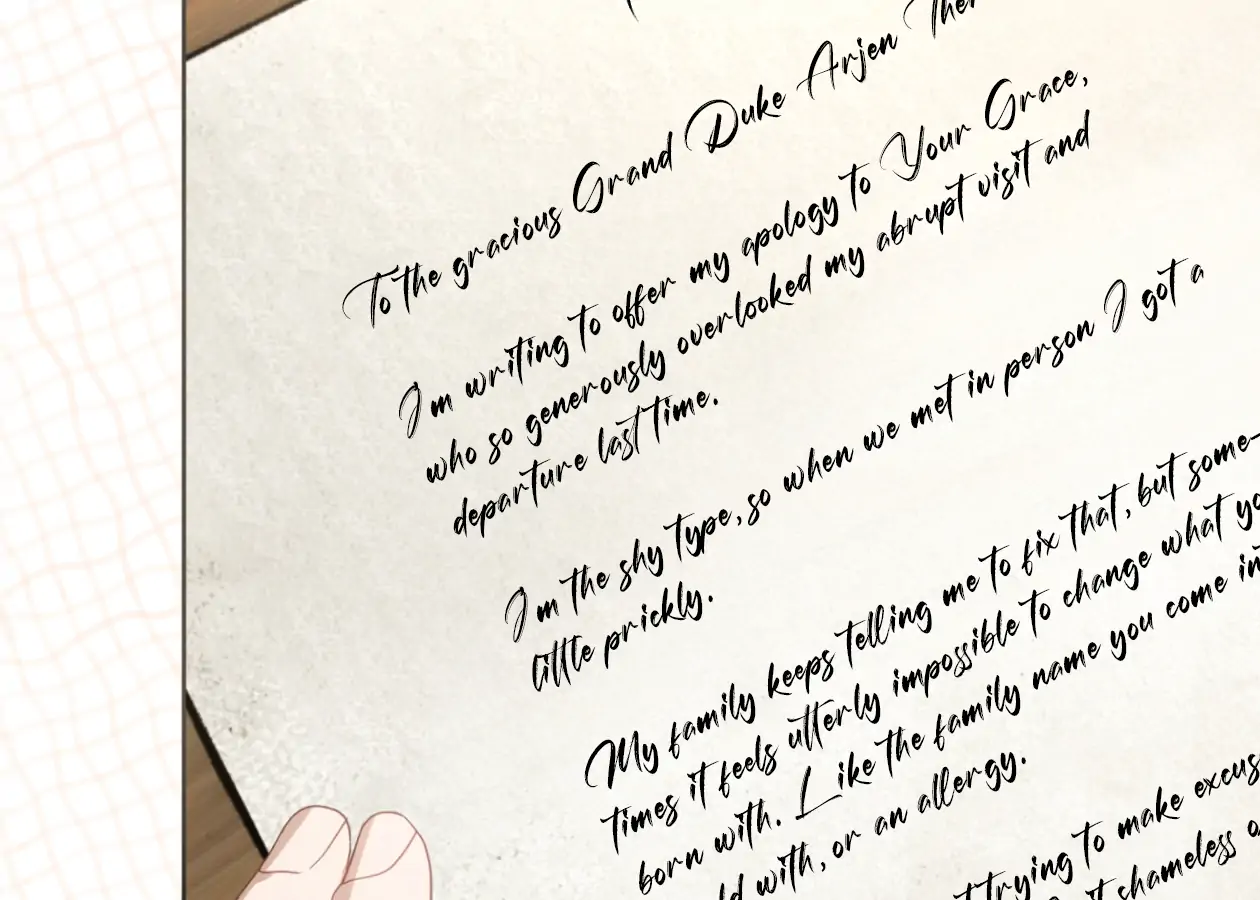 To the gracious Grand Duke Arjen
I'm writing to offer my apology to Your Grace,
who so generously overlooked my abrupt visit and
departure last time.
I'm the shy type, so when we met in person I got a
little prickly.
My family keeps telling me to fix that, but some-
times it feels utterly impossible to change what
born with. Like the family name you come
with, or an allergy.
trying to make
shameless